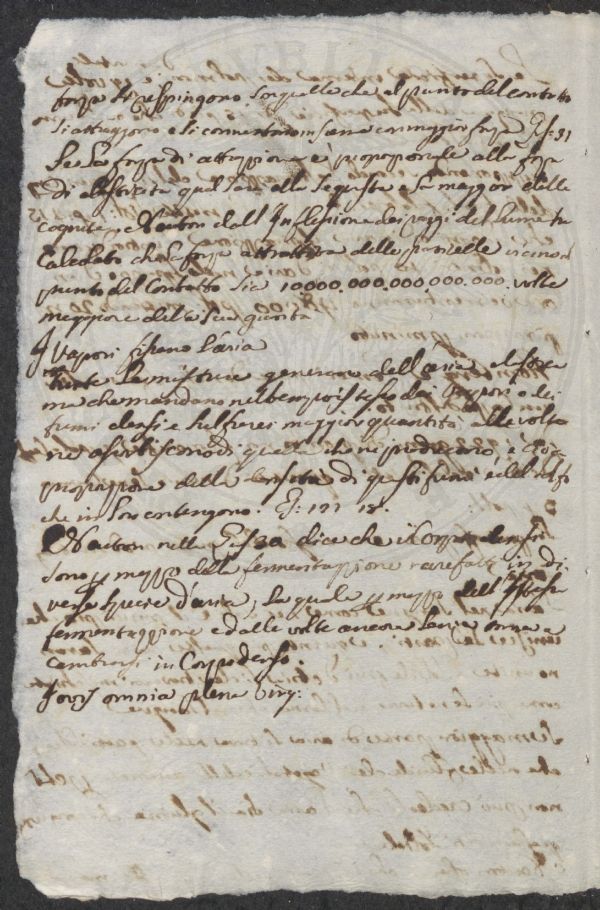 forza si respingono, son quelle che al punto del contatto
si attraggono e si connettono insieme con maggior forza. Ef: 31
Se la forza di attrazione è proporzionale alla forza
di elasticità qual sarà ella se questa è la maggior delle
cognite, e Neuton dall'Inflessione dei raggi del lume ha
calcolato che la forza attrattiva delle particelle vicino al
punto del Contatto sia 10000.000.000.000.000. volte
maggiore della sua gravità
I Vapori fissano l'aria
tante le misture generano dell'aria elastica
ma che mandano nel tempo istesso dei Vapori e dei
fumi densi e sulfurei maggior quantità, alle volte
ne assorbiscono di quella che ne producono, e ciò a
proporzione della densità di questi fumi e del solfo
che in loro contengono.
Neuton nella dice che i Corpi densi
sono p mezzo della fermentazione rarefatti in di
verse specie d'aria, la quale p mezzo dell'istessa
fermentazione e dalle volte ancora senza torna a
cambiarsi in Corpo denso.
Jovis omnia plena Virg: